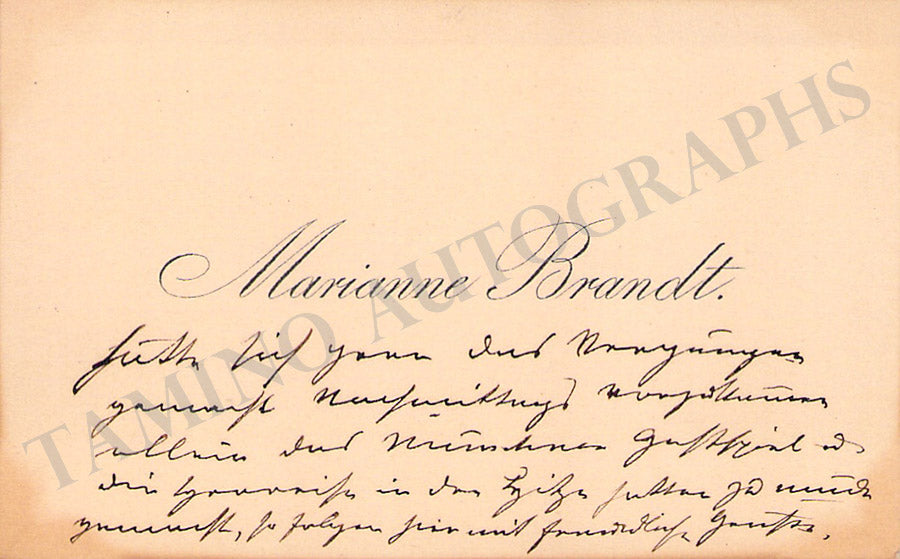 TAMINO AUTOGRAPHS
Marianne Brandt.
hätte sich gern das Vergnügen
gemacht Nachmittags vorzukommen
allein das Münchner Gastspiel
die in der Hitze hatten zu müde
gemacht, so folgen hier mit freundlich Grüße.